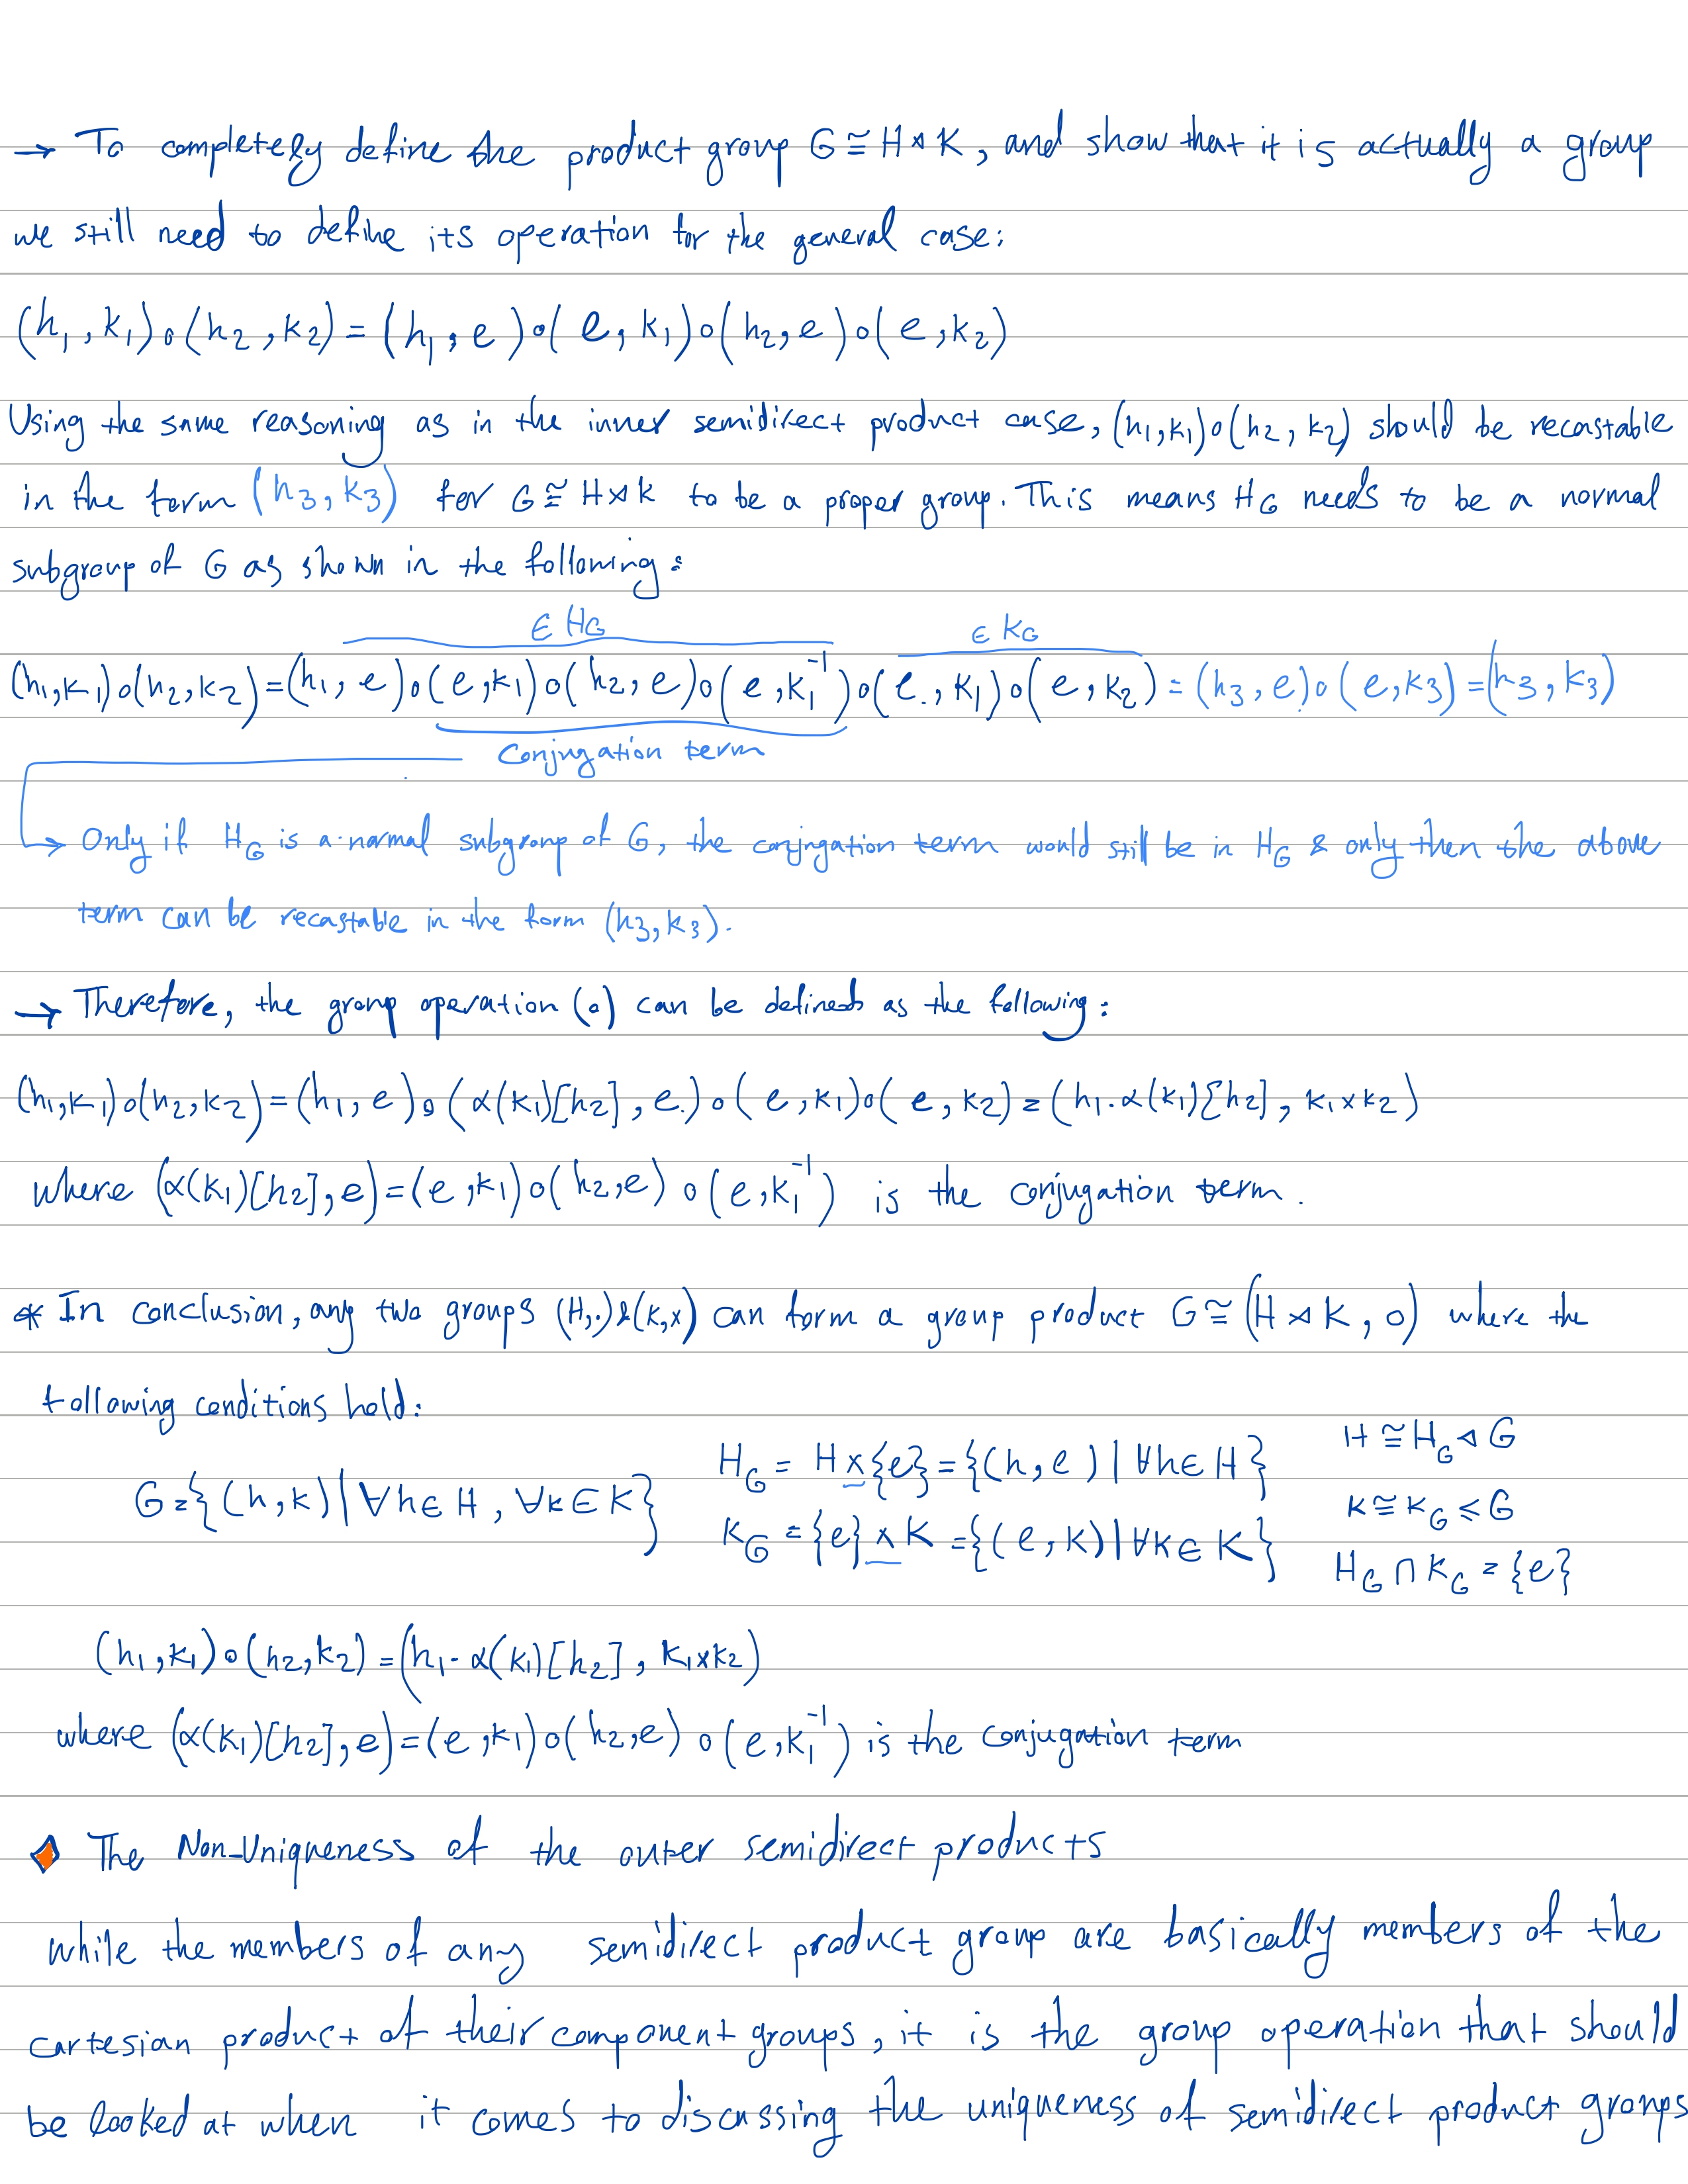 → To completely define the product group G ≅ H ⋊ K, and show that it is actually a group
we still need to define its operation for the general case:
(h₁, k₁)∘(h₂, k₂) = (h₁, e)∘(e, k₁)∘(h₂, e)∘(e, k₂)
Using the same reasoning as in the inner semidirect product case, (h₁,k₁)∘(h₂, k₂) should be recastable
in the form (h₃, k₃) for G ≅ H ⋊ K to be a proper group. This means H_G needs to be a normal
subgroup of G as shown in the following:
∈ H_G ∈ K_G
(h₁,k₁)∘(h₂,k₂) = (h₁, e)∘(e,k₁)∘(h₂, e)∘(e,k₁⁻¹)∘(e, k₁)∘(e, k₂) = (h₃, e)∘(e,k₃) = (h₃, k₃)
Conjugation term
→ Only if H_G is a normal subgroup of G, the conjugation term would still be in H_G & only then the above
term can be recastable in the form (h₃, k₃).
→ Therefore, the group operation (∘) can be defined as the following:
(h₁,k₁)∘(h₂,k₂) = (h₁, e)∘(α(k₁)[h₂], e)∘(e, k₁)∘(e, k₂) = (h₁·α(k₁)[h₂], k₁×k₂)
where (α(k₁)[h₂], e) = (e,k₁)∘(h₂,e)∘(e,k₁⁻¹) is the conjugation term.
* In conclusion, any two groups (H,·) & (K,×) can form a group product G ≅ (H ⋊ K, ∘) where the
following conditions hold:
H_G = H × {e} = {(h, e) | ∀h ∈ H} H ≅ H_G ◁ G
G = {(h,k) | ∀h ∈ H, ∀k ∈ K} K ≅ K_G ⩽ G
K_G = {e} × K = {(e, k) | ∀k ∈ K} H_G ∩ K_G = {e}
(h₁,k₁)∘(h₂,k₂) = (h₁·α(k₁)[h₂], k₁×k₂)
where (α(k₁)[h₂], e) = (e,k₁)∘(h₂,e)∘(e,k₁⁻¹) is the conjugation term
The Non-Uniqueness of the outer semidirect products
while the members of any semidirect product group are basically members of the
cartesian product of their component groups, it is the group operation that should
be looked at when it comes to discussing the uniqueness of semidirect product groups